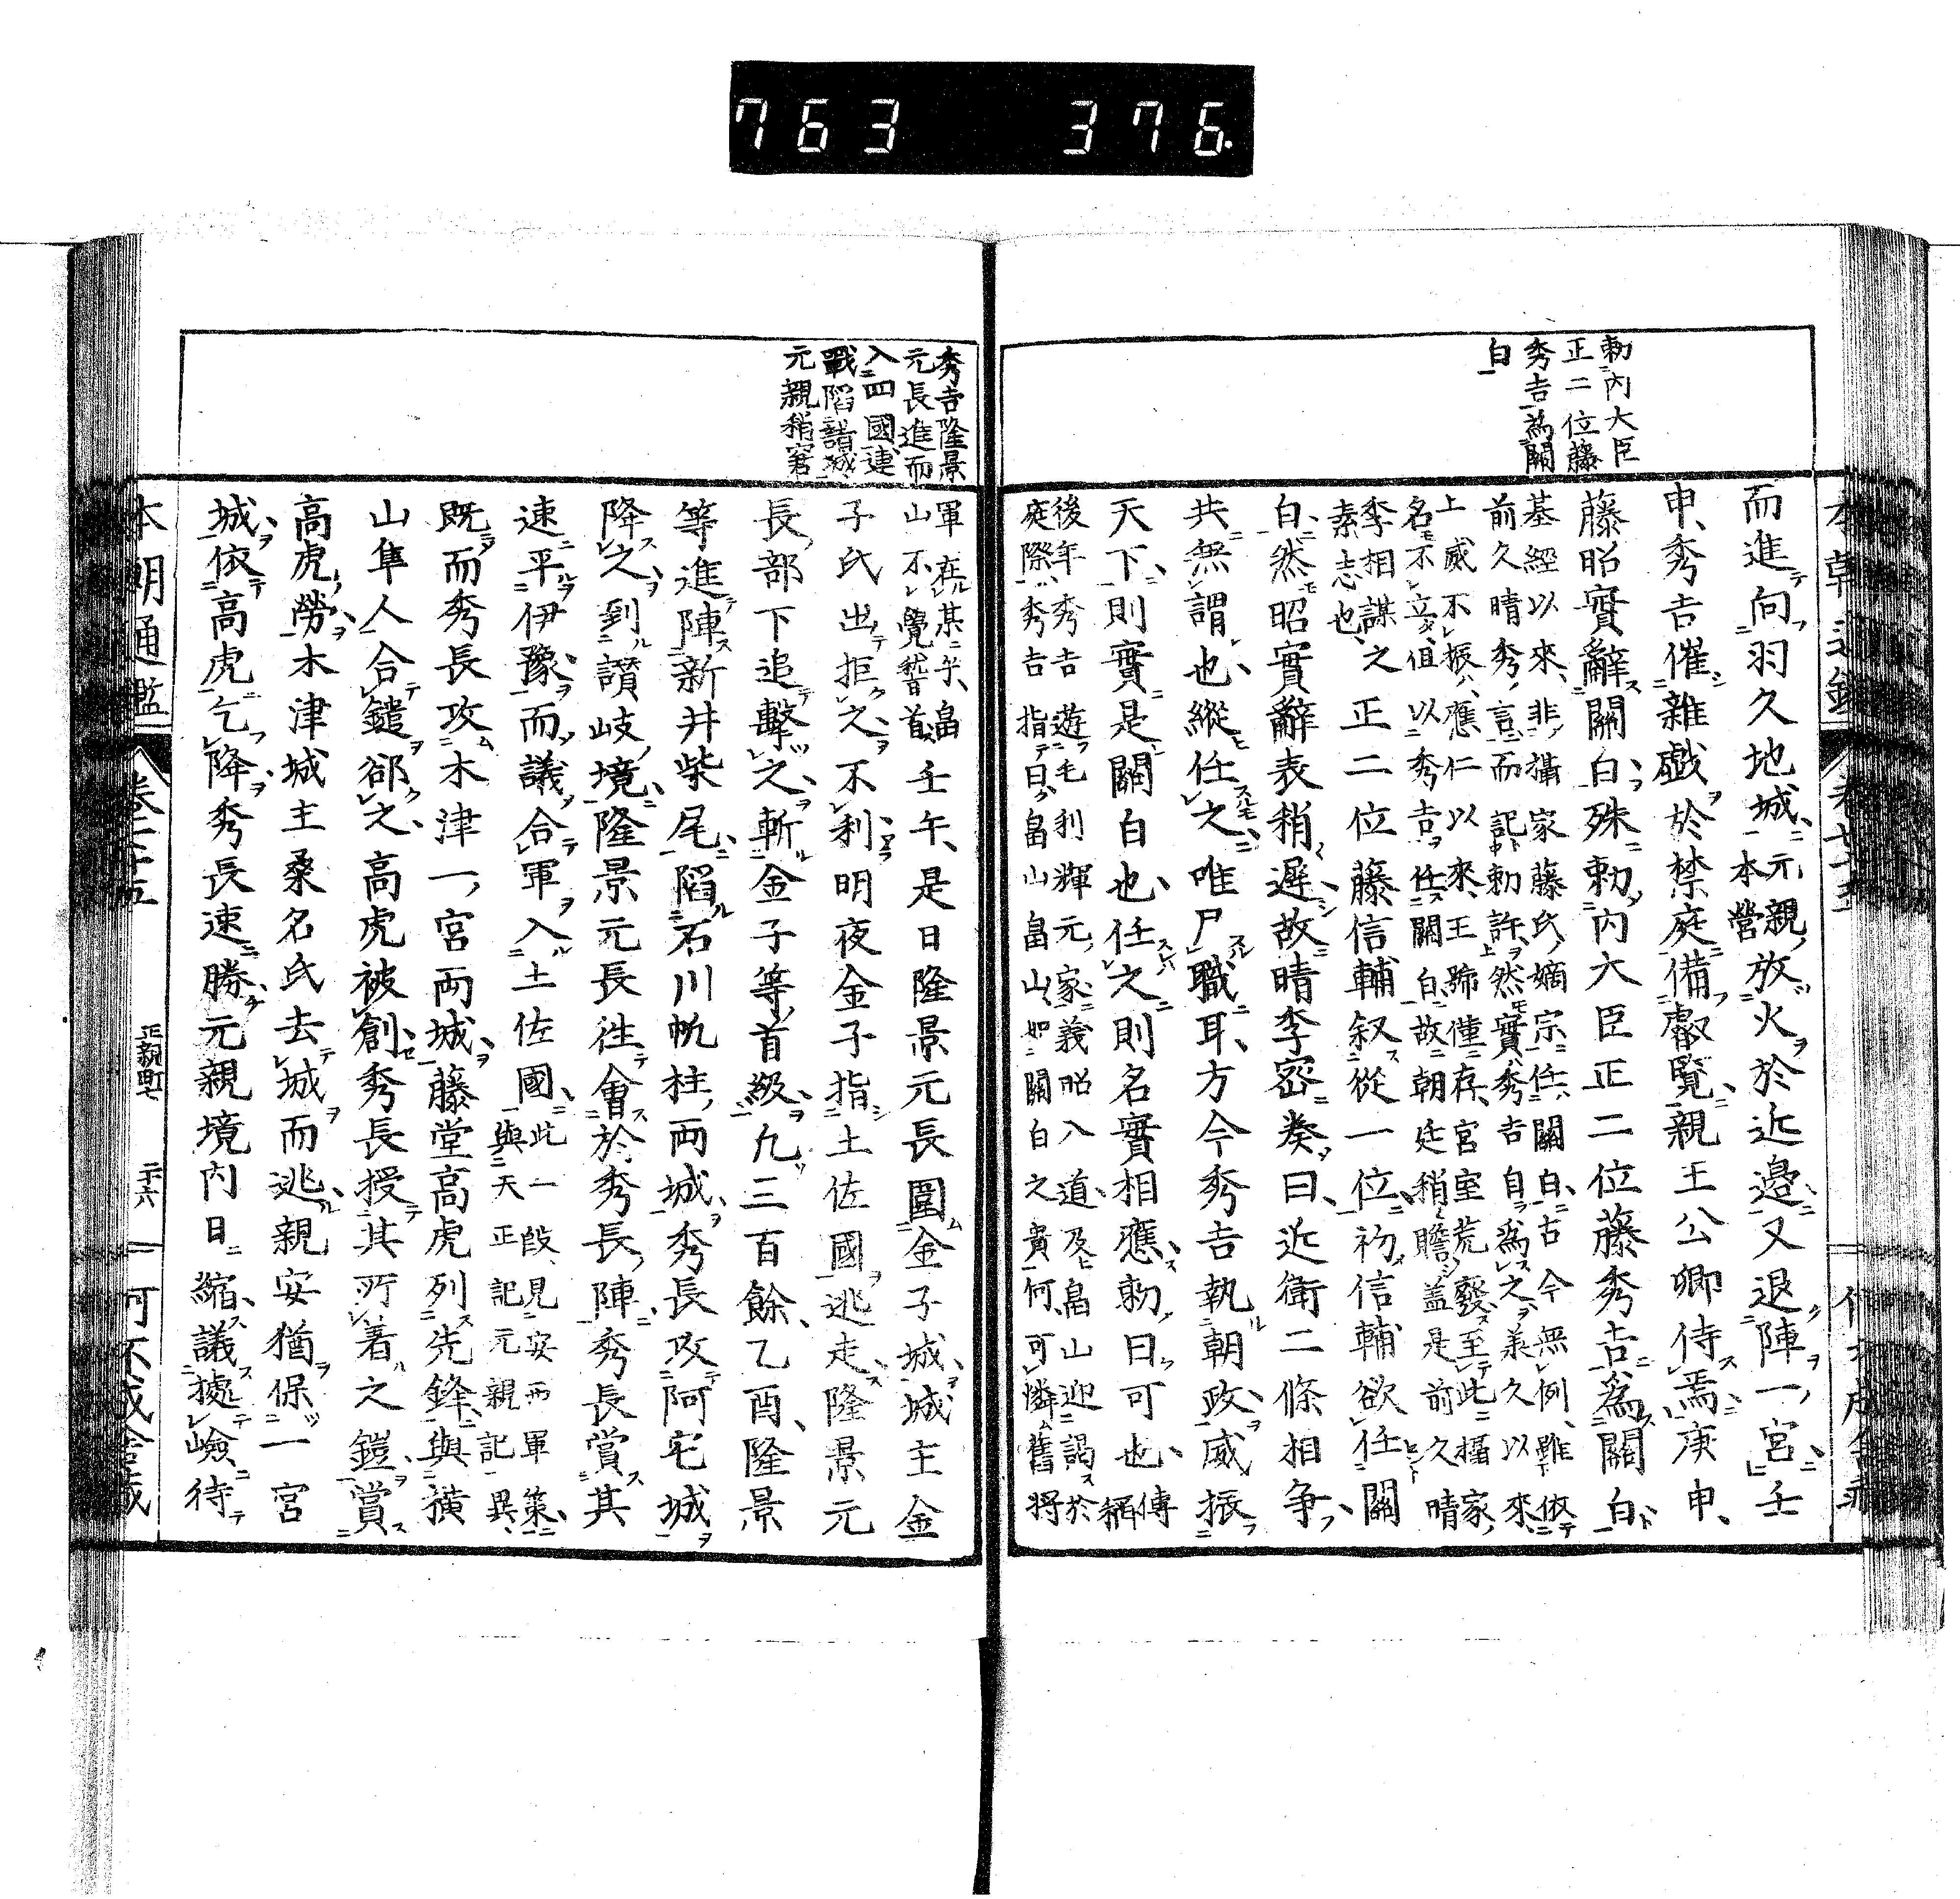 763 376
勅內大臣
正二位藤
秀吉爲關
白
而進向羽久地城元親本營放火於近邊又退陣一宮壬
申秀吉催雜戯於禁庭備叡覽親王公卿侍焉庚申
藤昭實辭關白殊勅內大臣正二位藤秀吉爲關白
基經以來非攝家藤氏嫡宗任關白古今無例雖依
前久晴秀言而記勅許然實秀吉自爲之義久以來
上威不振應仁以來王號僅存宮室荒廢至此攝家
名不立值以秀吉任關白故朝廷稍贍盖是前久晴
季相謀之
素志也
正二位藤信輔叙從一位初信輔欲任關
白然昭實辭表稍遲故晴季密奏曰近衛二條相争
共無謂也縱任之唯尸職耳方今秀吉執朝政威振
天下則實是關白也任之則名實相應勅曰可也傳稱
後年秀吉遊毛利輝元家義昭入道及畠山迎謁於
庭際秀吉指曰畠山畠山如關白之貴何可憐舊將
秀吉隆景
元長進而
入四國連
戰陷諸城
元親稍窘
軍在某年畠
山不覺稽首
壬午是日隆景元長圍金子城城主金
子氏出拒之不利明夜金子指土佐國逃走隆景元
長部下追擊之斬金子等首級九三百餘乙酉隆景
等進陣新井柴尾陷石川帆柱兩城秀長攻阿宅城
降之到讚岐境隆景元長徃會於秀長陣秀長賞其
速平伊豫而議合軍入土佐國
此一段見安西軍策
與天正記元親記異
既而秀長攻木津一宮両城藤堂高虎列先鋒與横
山隼人合鑓郤之高虎被創秀長授其所着之鎧賞
高虎勞木津城主桑名氏去城而逃親安猶保一宮
城依高虎乞降秀長速勝元親境內日縮議據嶮待
本朝通鑑
卷二十五
正親町七
二十六